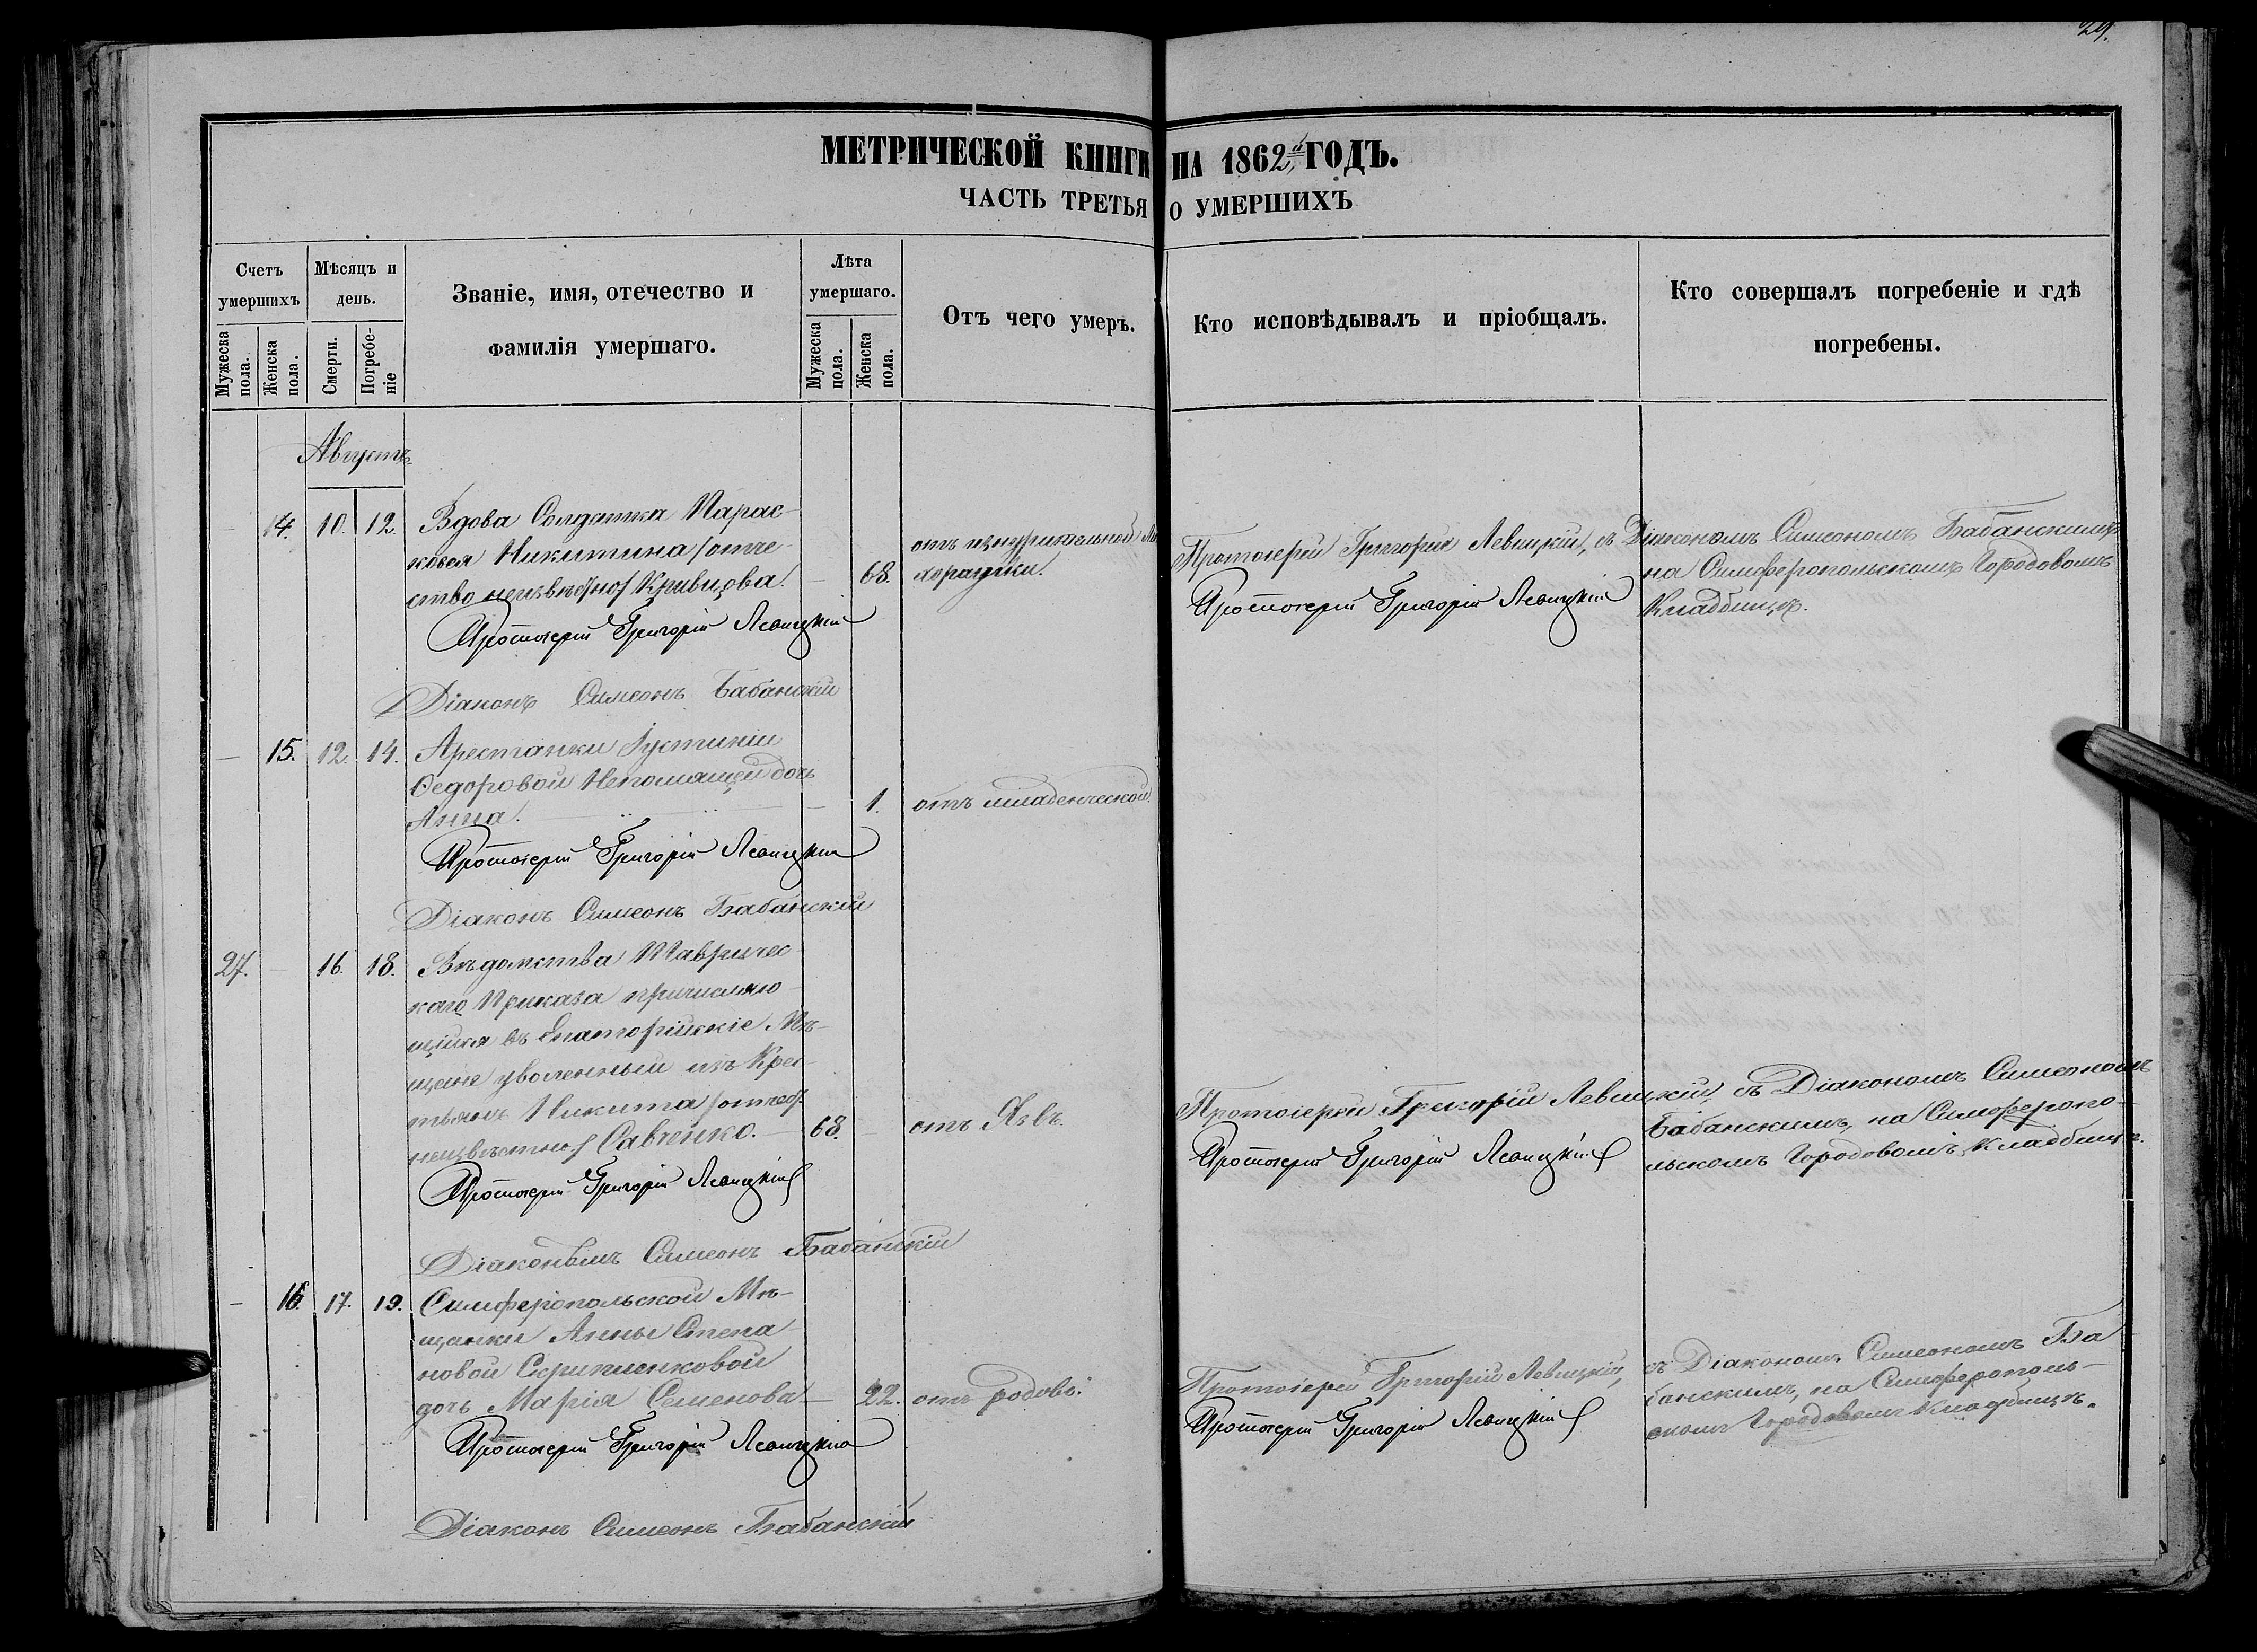 29.
МЕТРИЧЕСКОЙ КНИГИ НА 1862й ГОДЪ.
ЧАСТЬ ТРЕТЬЯ О УМЕРШИХЪ
Счетъ умершихъ
Мужеска пола.
Женска пола.
Мѣсяцъ и день.
Смерти.
Погребеніе
Званіе, имя, отечество и
фамилія умершаго.
Лѣта умершаго.
Мужеска пола.
Женска пола.
Отъ чего умеръ.
Кто исповѣдывалъ и пріобщалъ.
Кто совершалъ погребеніе и гдѣ
погребены.
Августъ
— 14. 10. 12. Вдова Солдатка Парас-
ковея Никитина /отче-
ство неизвѣстно/ Кривцова.
— 68.
отъ изнурительной
лихорадки.
Протоіерей Григорій Левицкій,
съ Діакономъ Симеономъ Бабанскимъ,
на Симферопольскомъ Городовомъ
Кладбищѣ.
Протоіерей Григорій Левицкій
Протоіерей Григорій Левицкій
Діаконъ Симеонъ Бабанскій
— 15. 12. 14. Арестанки Іустиніи
Ѳедоровой Непомящей дочь
Анна.
— 1. отъ младенческой.
Протоіерей Григорій Левицкій
Діаконъ Симеонъ Бабанскій
27. — 16. 18. Вѣдомства Тавричес-
каго Приказа причисляю-
щійся въ Евпаторійскіе Мѣ-
щане уволенный изъ Крес-
тьянъ Никита /отчес.
неизвѣстно/ Савченко.
68. —
Протоіерей Григорій Левицкій,
съ Діакономъ Симеономъ
Бабанскимъ, на Симферопо-
льскомъ Городовомъ Кладбищѣ.
Протоіерей Григорій Левицкій
Протоіерей Григорій Левицкій
Симеонъ Бабанскій
— 16. 17. 19. Симферопольской Мѣ-
щанки Анны Степа-
новой
дочь Марія Семенова
— 22. отъ родовъ.
Протоіерей Григорій Левицкій,
съ Діакономъ Симеономъ Ба-
банскимъ, на Симферополь-
скомъ Городовомъ Кладбищѣ.
Протоіерей Григорій Левицкій
Протоіерей Григорій Левицкій
Діаконъ Симеонъ Бабанскій